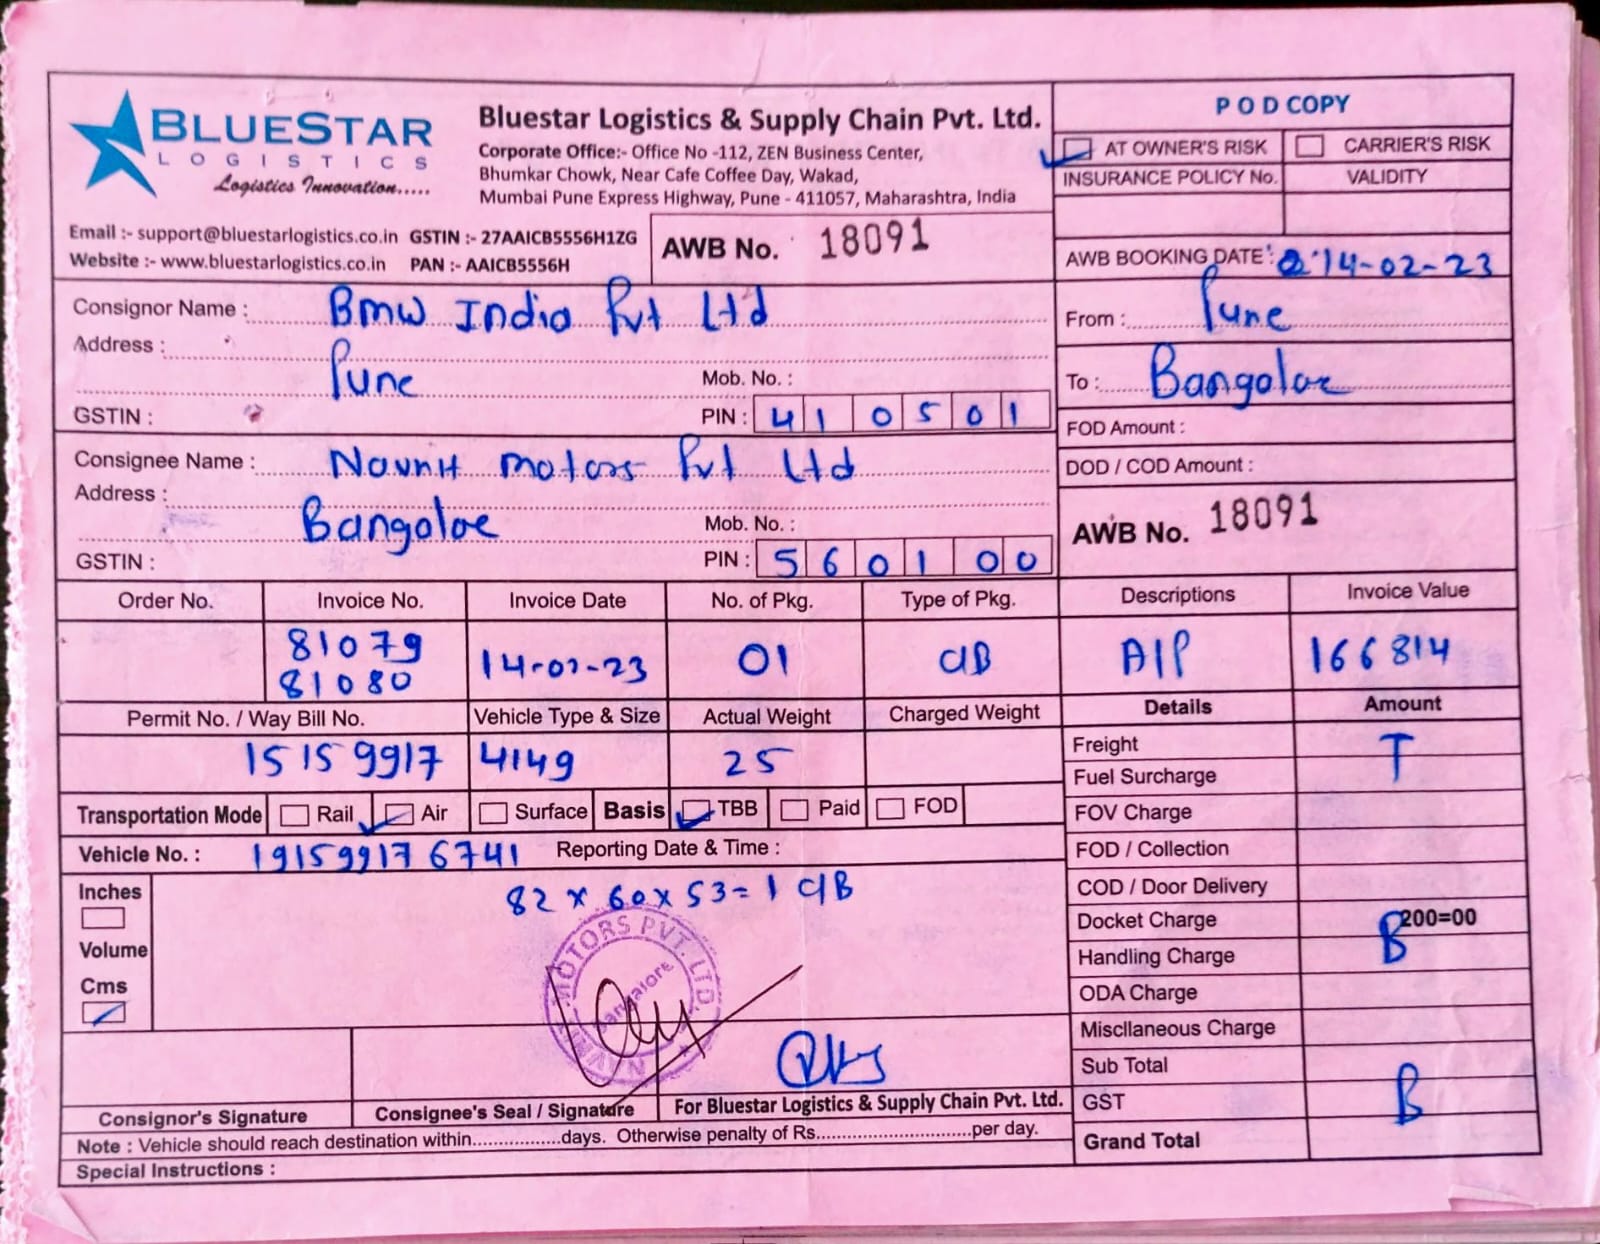 BLUESTAR
LOGISTICS
Logistics Innovation.....
Bluestar Logistics & Supply Chain Pvt. Ltd.
Corporate Office:- Office No -112, ZEN Business Center,
Bhumkar Chowk, Near Cafe Coffee Day, Wakad,
Mumbai Pune Express Highway, Pune - 411057, Maharashtra, India
Email :- support@bluestarlogistics.co.in GSTIN :- 27AAICB5556H1ZG
Website :- www.bluestarlogistics.co.in PAN :- AAICB5556H
AWB No. 18091
POD COPY
AT OWNER'S RISK CARRIER'S RISK
INSURANCE POLICY No. VALIDITY
AWB BOOKING DATE : 14-02-23
Consignor Name : Bmw India Pvt Ltd
Address :
Pune
Mob. No. :
GSTIN :
PIN : 410501
From : Pune
To : Bangalore
FOD Amount :
DOD / COD Amount :
AWB No. 18091
Consignee Name : Navnit motors Pvt Ltd
Address :
Bangaloe
Mob. No. :
GSTIN :
PIN : 560100
Order No. Invoice No. Invoice Date No. of Pkg. Type of Pkg. Descriptions Invoice Value
81079
81080 14-02-23 01 C/B A/P 166814
Permit No. / Way Bill No. Vehicle Type & Size Actual Weight Charged Weight
15159917 4149 25
Transportation Mode Rail Air Surface Basis TBB Paid FOD
Vehicle No. : 191599176741 Reporting Date & Time :
Inches
Volume
Cms
82 x 60 x 53 = 1 C/B
MOTORS PVT. LTD.
Bangalore
Consignor's Signature
Consignee's Seal / Signature
For Bluestar Logistics & Supply Chain Pvt. Ltd.
Note : Vehicle should reach destination within.................days. Otherwise penalty of Rs.............................per day.
Special Instructions :
Details Amount
Freight T
Fuel Surcharge
FOV Charge
FOD / Collection
COD / Door Delivery
Docket Charge 200=00
Handling Charge B
ODA Charge
Miscllaneous Charge
Sub Total
GST B
Grand Total